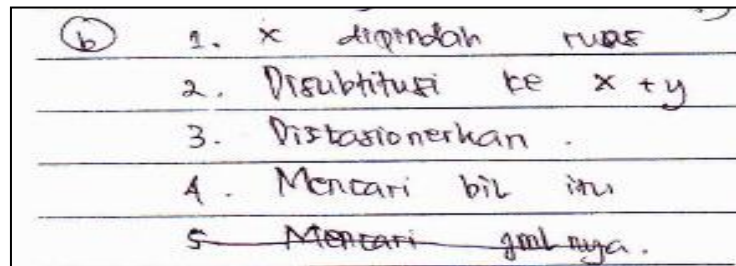 b 1. x dipindah ruas
2. Disubtitusi ke x + y
3. Distasionerkan.
4. Mencari bil itu
5 Mencari jml nya.